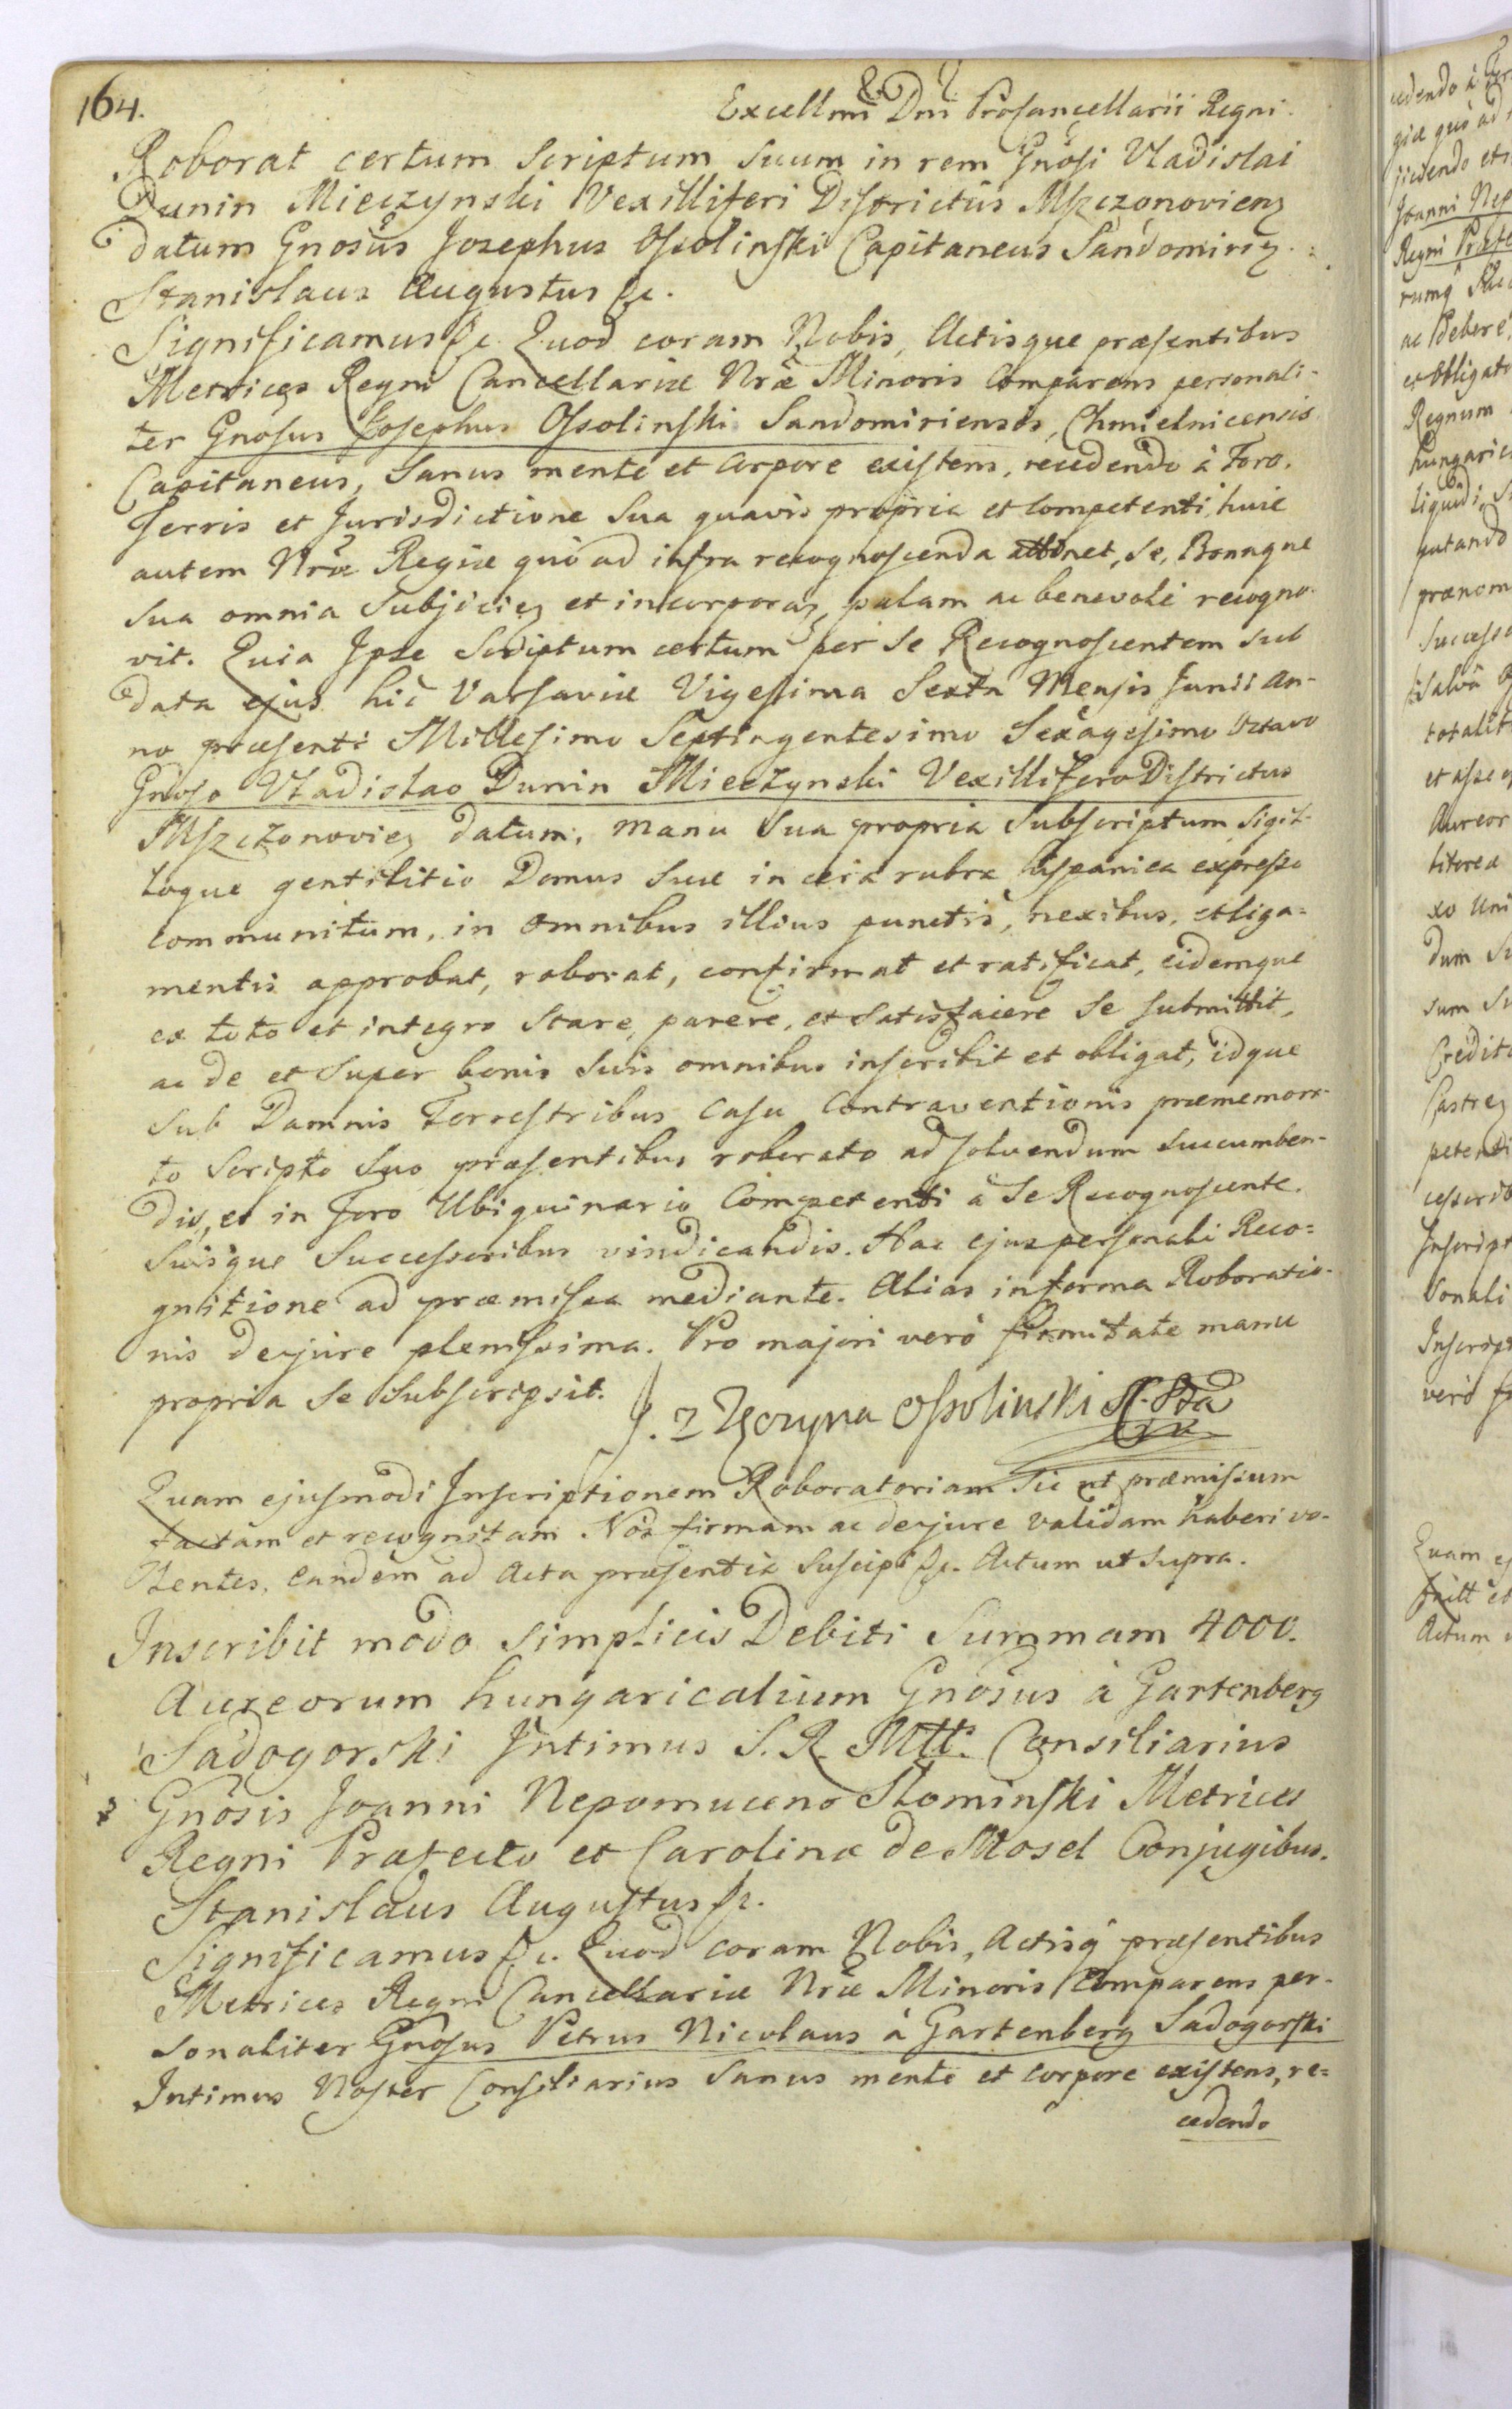 164.
Excellmi Dni Procancellarii Regni.
Roborat certum Scriptum suum in rem Gnosi Vladislai
Dunin Mieczynski Vexilliferi Districtus Mszczonovien
datum Gnosus Josephus Ossolinski Capitaneus Sandomirien.
Stanislaus Augustus &c.
Significamus &c. Quod coram Nobis, Actisque præsentibus
Metrices Regni Cancellariæ Nræ Minoris Comparens personali-
ter Gnosus Josephus Ossolinski Sandomiriensis, Chmielnicensis
Capitaneus, Sanus mente et Corpore existens, recedendo à Foro,
Terris et Jurisdictione Sua quavis propria et Competenti, huic
autem Nræ Regiæ quò ad infra recognoscenda attinet, Se, Bonaque
Sua omnia Subjicien et incorporan, palam ac benevole recogno-
vit. Quia Ipse Scriptum certum per Se Recognoscentem sub
data ejus hic Varsaviæ Vigesima Sexta Mensis Junii An-
no præsenti Millesimo Septingentesimo Sexagesimo Octavo
Gnoso Vladislao Dunin Mieczynski Vexillifero Districtus
Mszczonovien datum, manu Sua propria Subscriptum, Sigil-
loque gentilitio Domus Suæ in cera rubra hispanica expresso
Communitum, in omnibus illius punctis, nexibus, et liga-
mentis approbat, roborat, confirmat et ratificat, eidemque
ex toto et integro Stare, parere, et Satisfacere Se Submittit,
ac de et Super bonis Suis omnibus inscribit et obligat, idque
Sub Damnis Terrestribus Casu Contraventionis præmemora-
to Scripto Suo præsentibus roborato ad solvendum Succumben-
dis, et in foro Ubiquinario Competenti à Se Recognoscente,
Suisque Successoribus vindicandis. Hac ejus personali Reco-
gnitione ad præmissa mediante. Alias in forma Roboratio-
nis de jure plenissima. Pro majori verò firmitate manu
propria Se Subscripsit.
J. z Tęczyna Ossolinski
Quam ejusmodi Inscriptionem Roboratoriam Sic ut præmissum
factam et recognitam Nos firmam ac de jure validam haberi vo-
lentes, eandem ad Acta præsentia Suscipi &c. Actum ut Supra.
Inscribit modo Simplicis Debiti Summam 4000.
Aureorum hungaricalium Gnosus à Gartenberg
Sadogorski Intimus S. R. Mtt. Consiliarius
Gnosis Joanni Nepomuceno Slominski Metrices
Regni Præfecto et Carolinæ de Mosel Conjugibus.
Stanislaus Augustus &c.
Significamus &c. Quod coram Nobis, Actisq præsentibus
Metrices Regni Cancellariæ Nræ Minoris Comparens per-
sonaliter Gnosus Petrus Nicolaus à Gartenberg Sadogorski
Intimus Noster Consiliarius Sanus mente et corpore existens, re-
cedendo